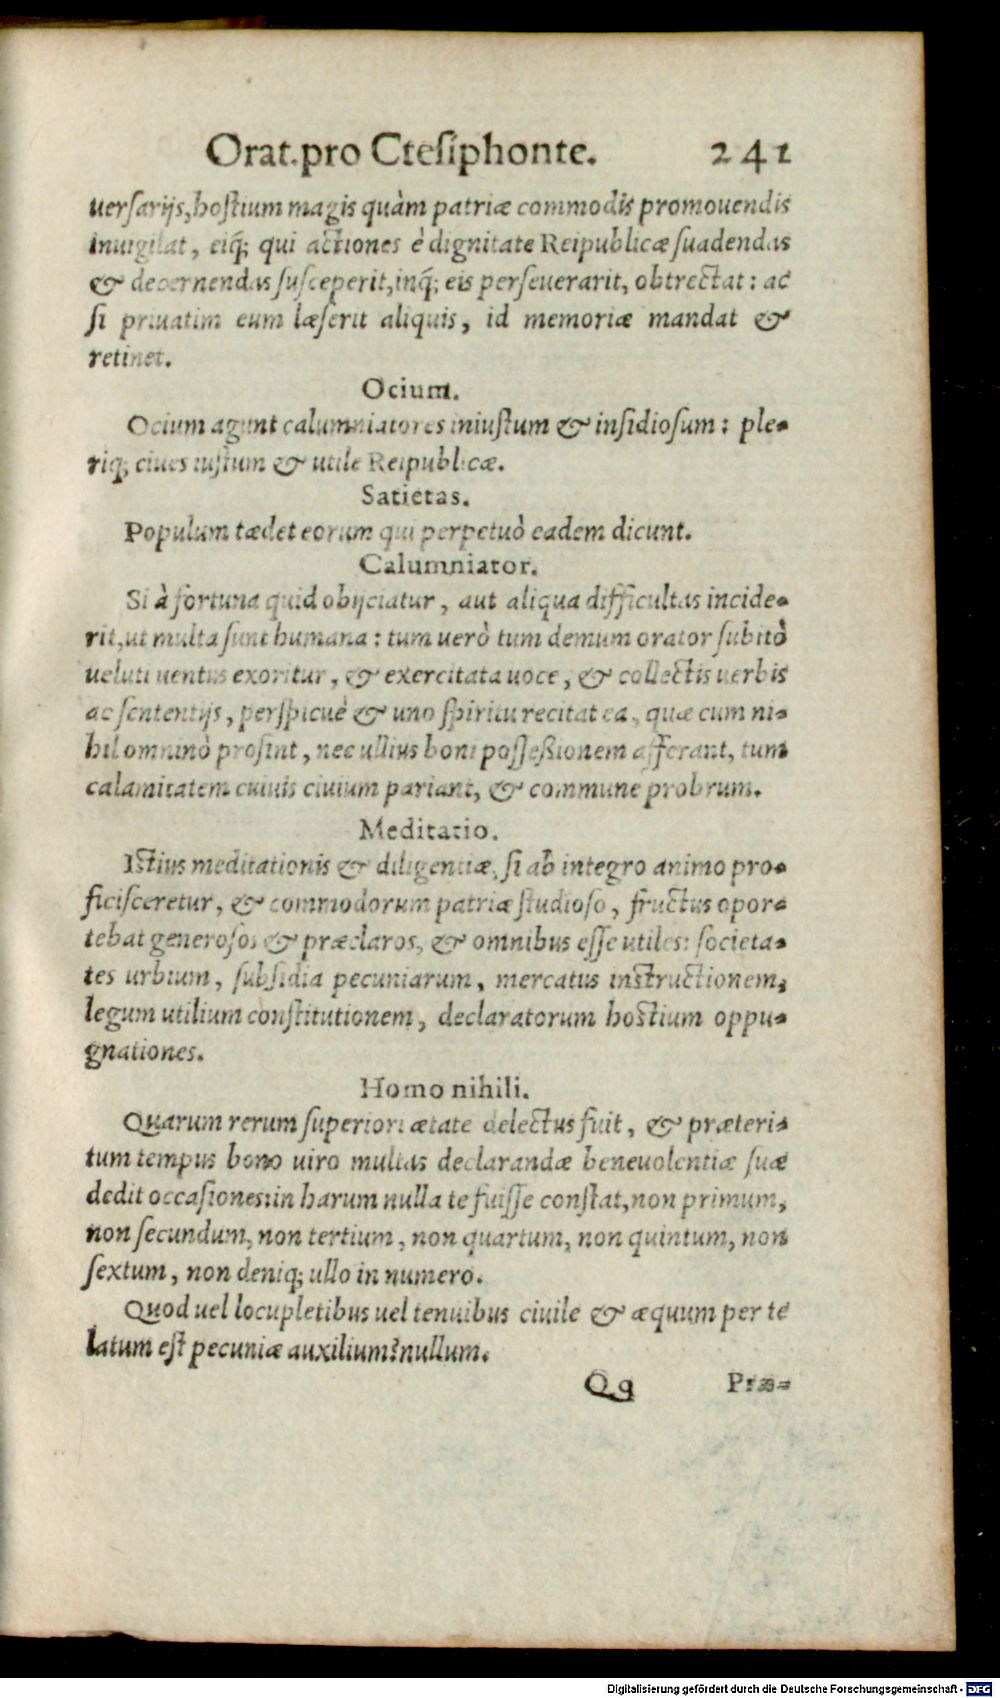 Orat.pro Cteſiphonte. 241
uerſarijs, hoſtium magis quàm patriæ commodis promouendis
inuigilat, eiq́; qui actiones è dignitate Reipublicæ ſuadendas
& decernendas ſuſceperit, inq́; eis perſeuerarit, obtrectat: ac
ſi priuatim eum læſerit aliquis, id memoriæ mandat &
retinet.
Ocium.
Ocium agunt calumniatores iniuſtum & inſidioſum: ple-
riq; ciues iuſtum & utile Reipublicæ.
Satietas.
Populum tædet eorum qui perpetuò eadem dicunt.
Calumniator.
Si à fortuna quid obijciatur, aut aliqua difficultas incide-
rit, ut multa ſunt humana: tum uerò tum demum orator ſubitò
ueluti uentus exoritur, & exercitata uoce, & collectis uerbis
ac ſententijs, perſpicuè & uno ſpiritu recitat ea, quæ cum ni-
hil omninò proſint, nec ullius boni poſſeßionem afferant, tum
calamitatem cuiuis ciuium pariant, & commune probrum.
Meditatio.
Iſtius meditationis & diligentiæ, ſi ab integro animo pro-
ficiſceretur, & commodorum patriæ ſtudioſo, fructus opor-
tebat generoſos & præclaros, & omnibus eſſe utiles: ſocieta-
tes urbium, ſubſidia pecuniarum, mercatus inſtructionem,
legum utilium conſtitutionem, declaratorum hoſtium oppu-
gnationes.
Homo nihili.
Quarum rerum ſuperiori ætate delectus fuit, & præteri-
tum tempus bono uiro multas declarandæ beneuolentiæ ſuæ
dedit occaſiones: in harum nulla te fuiſſe conſtat, non primum,
non ſecundum, non tertium, non quartum, non quintum, non
ſextum, non deniq; ullo in numero.
Quod uel locupletibus uel tenuibus ciuile & æquum per te
latum eſt pecuniæ auxilium? nullum.
Qq Præ-
Digitalisierung gefördert durch die Deutsche Forschungsgemeinschaft - DFG